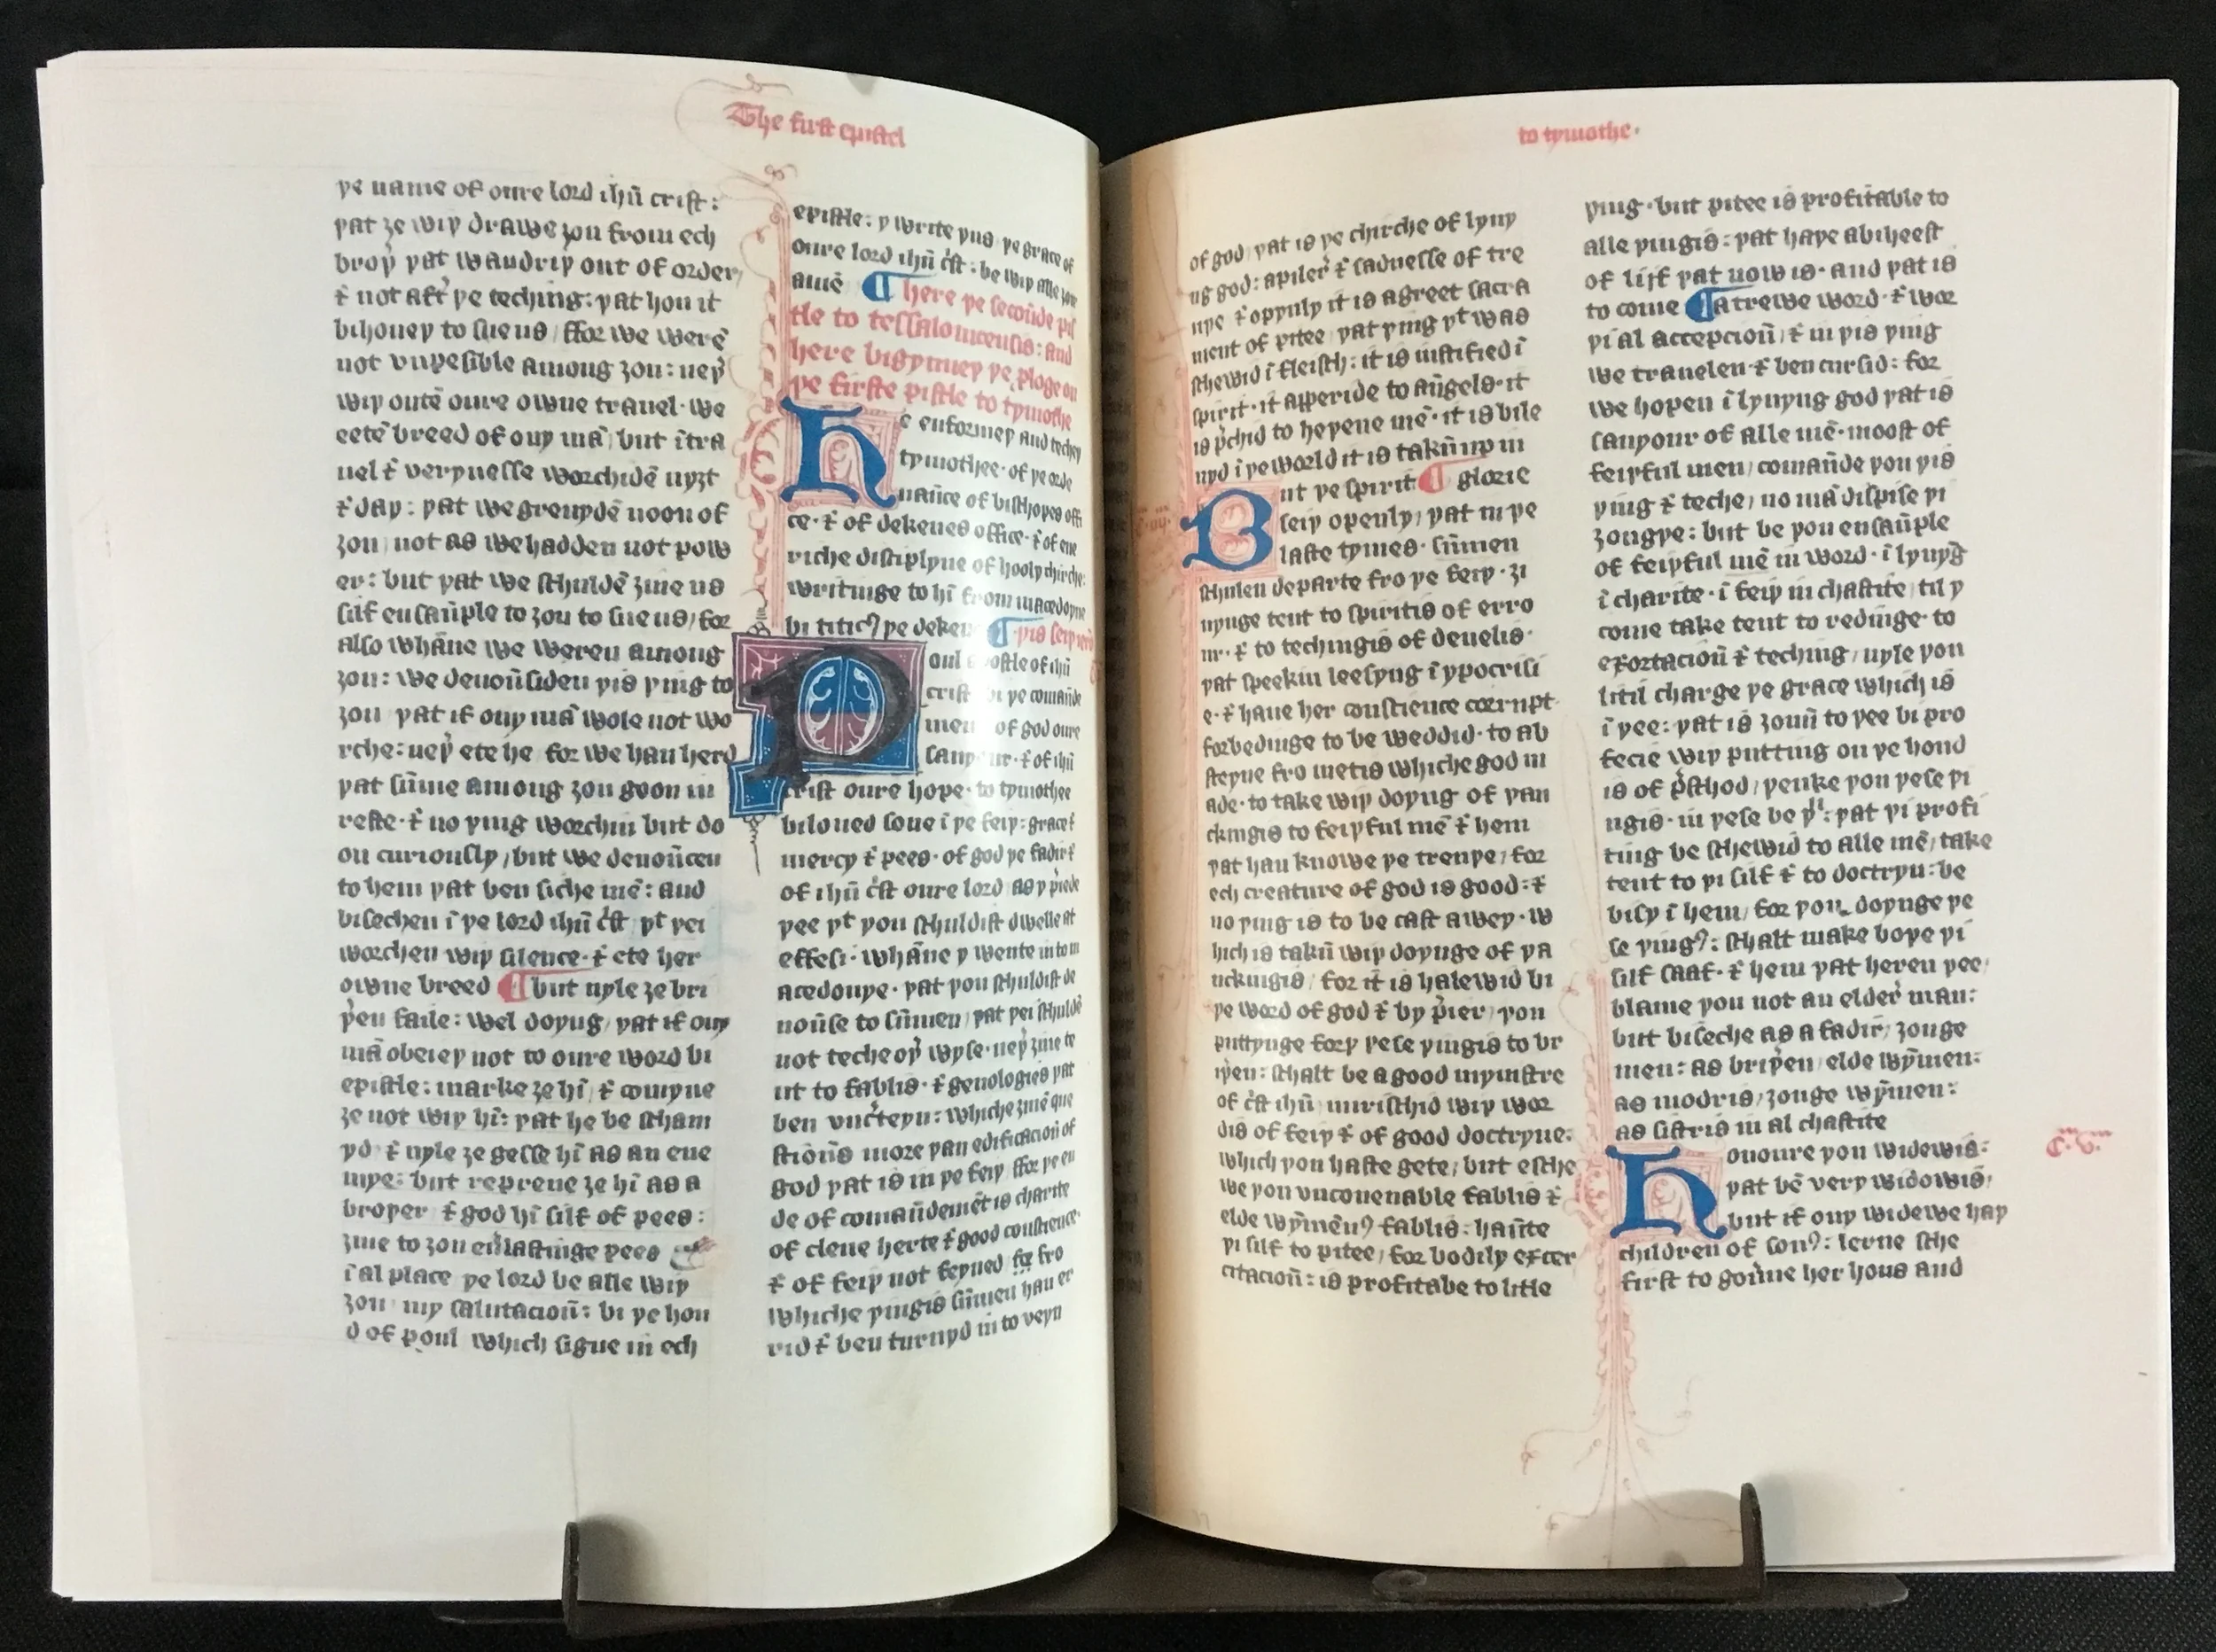 The first epistel
þe name of oure lord ihū crist:
þat ȝe wiþ drawe ȝou from ech
broþ̉ þat wandriþ out of order,
& not aft̉ þe teching: þat þon it
bihoueþ to sue us/ ffor we were
not vnpesible among ȝou: neþ̉
wiþ outē oure owne trauel· we
eetē breed of ony mā/ but ītra
uel & verynesse worchidē nyȝt
& day: þat we greuydē noon of
ȝou/ not as we hadden not pow
er: but þat we schuldē ȝiue us
silf ensaūple to ȝou to sue us/ for
also whāne we weren among
ȝou: we denoūsiden þis þing to
ȝou þat if ony mā wole not wo
rche: neþ̉ ete he for we han herd
þat sūme among ȝou goon in
reste· & no þing worchin but do
on curiously/ but we denoūcen
to hem þat ben siche mē: and
bisechen ī þe lord ihū c̉st þt þei
worchen wiþ silence· & ete her
owne breed ¶ but nyle ȝe bri
þ̉en faile: wel doyng/ þat if ony
mā obeieþ not to oure word bi
epistle: marke ȝe hī/ & comyne
ȝe not wiþ hī: þat he be scham
yd· & nyle ȝe gesse hī as an ene
mye: but repreue ȝe hī as a
broþer & god hī silf of pees:
ȝiue to ȝou eủlastinge pees
ī al place þe lord be alle wiþ
ȝou my salutacioū: bi þe hon
d of poul which signe in ech
epistle: y write þus þe grace of
oure lord ihū c̉st: be wiþ alle ȝou
amē ¶ here þe secoūde pis
tle to tessalonicensis: and
here bigynneþ þe ploge on
þe firste pistle to tymothe
He enformeþ and techeþ
tymothee· of þe orde
naūce of bischopes offi
ce· & of dekenes office· & of eue
riche disciplyne of hooly chirche:
writinge to hī from macedoyne
bi titic⁹ þe deken
Poul apostle of ihū
crist bi þe comaūde
ment of god oure
sauyour· & of ihū
crist oure hope· to tymothee
biloued sone ī þe feiþ: grace &
mercy & pees· of god þe fadir &
of ihū c̉st oure lord as y p̉iede
þee þt þou schuldist dwelle at
effesi· whāne y wente in to m
acedonye· þat þou schuldist de
noūse to sūmen/ þat þei schuldē
not teche oþ̉ wyse· neþ̉ ȝiue te
nt to fablis· & genologies þat
ben vnc̉teyn: whiche ȝiuē que
stioūs more þan edificacioū of
god þat is in þe feiþ ffor þe en
de of comaūdemēt is charite
of clene herte & good conscience·
& of feiþ not feyned fro
whiche þingis sūmen han er
rid & ben turnyd in to veyn
to tymothe·
of god/ þat is þe chirche of lyuy
ng god: apiler̉ & sadnesse of tre
uþe & oppynly it is agreet sacra
ment of pitee þat þing þt was
schewid ī fleisch: it is iustified ī
spirit· it apperide to aūgels· it
is p̉chid to heþene mē· it is bile
uyd ī þe world it is takū up in
¶ glorie
But þe spirit
seiþ openly/ þat in þe
laste tymes· sūmen
schulen departe fro þe feiþ· ȝi
uynge tent to spiritis of erro
ur· & to techingis of deuelis·
þat spekin leesyng īypocrisi
e· & haue her conscience corrupt
forbedinge to be weddid· to ab
steyne fro metis whiche god m
ade· to take wiþ doyng of þan
ckingis to feiþful mē & hem
þat han knowe þe treuþe/ for
ech creature of god is good: &
no þing is to be cast awey· w
hich is takū wiþ doynge of þa
nckingis/ for it is halewid bi
þe word of god & by p̉ier/ þou
puttynge forþ þese þingis to br
iþ̉en: schalt be a good mynistre
of c̉st ihū/ nurischid wiþ wor
dis of feiþ & of good doctryne:
which þou haste gete/ but esche
we þou vncouenable fablis &
elde wȳmēn⁹ fablis: haūte
þi silf to pitee/ for bodily exter
citacioū: is profitabe to litle
þing· but pitee is profitable to
alle þingis: þat haþe abiheest
of lijf þat now is· and þat is
to come ¶ a trewe word· & wor
þi al accepcioū/ & in þis þing
we trauelen & ben cursid: for
we hopen ī lyuyng god þat is
sauyour of alle mē· moost of
feiþful men/ comaūde þou þis
þing & teche/ no mā dispise þi
ȝongþe: but be þou ensaūple
of feiþful mē in word· ī lyuyg̉
ī charite· ī feiþ in chastite/ til y
come take tent to redinge· to
exortacioū & teching/ nyle þou
litil charge þe grace which is
ī þee: þat is ȝouū to þee bi pro
fecie wiþ putting on þe hond
is of p̉sthod/ þenke þou þese þi
ngis· in þese be þ̉: þat þi profi
ting be schewid to alle mē/ take
tent to þi silf & to doctryn: be
bisy ī hem/ for þou doynge þe
se þing⁹: schalt make boþe þi
silf saaf· & hem þat heren þee/
blame þou not an elder̉ man:
but biseche as a fadir/ ȝonge
men: as briþ̉en/ elde wȳmen:
as modris/ ȝonge wȳmen:
as sistris in al chastite
Honoure þou widewis:
þat bē very widowis/
but if ony widewe haþ
children of son⁹: lerne sche
first to goủne her hous and
C·v·